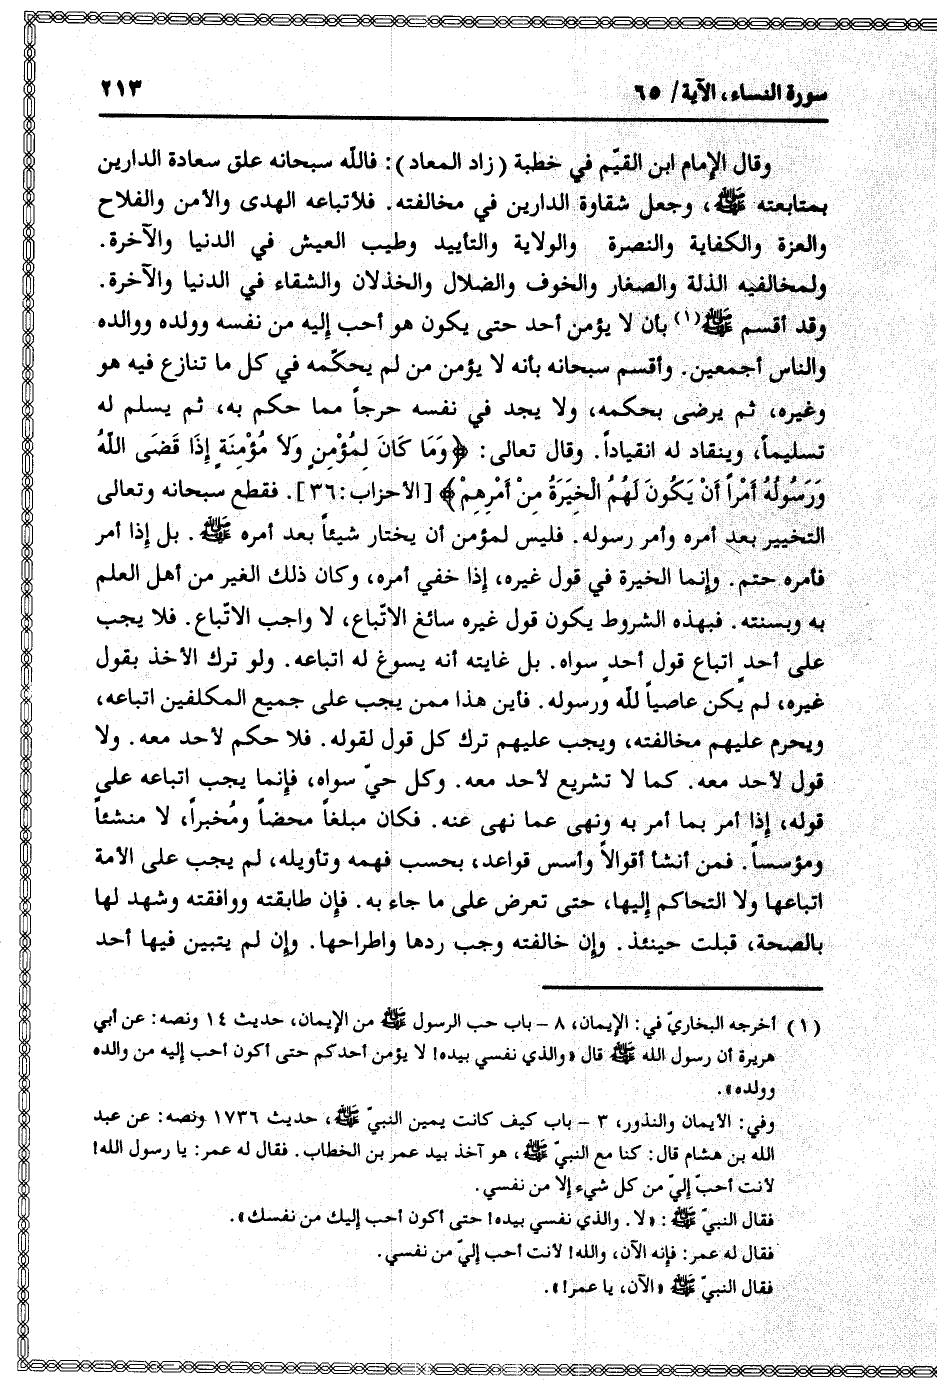 سورة النساء، الآية/ ٦٥
٢١٣
وقال الإمام ابن القيّم في خطبة (زاد المعاد): فاللّه سبحانه علق سعادة الدارين
بمتابعته ﷺ، وجعل شقاوة الدارين في مخالفته. فلأتباعه الهدى والأمن والفلاح
والعزة والكفاية والنصرة والولاية والتأييد وطيب العيش في الدنيا والآخرة.
ولمخالفيه الذلة والصغار والخوف والضلال والخذلان والشقاء في الدنيا والآخرة.
وقد أقسم ﷺ(١) بأن لا يؤمن أحد حتى يكون هو أحب إليه من نفسه وولده ووالده
والناس أجمعين. وأقسم سبحانه بأنه لا يؤمن من لم يحكّمه في كل ما تنازع فيه هو
وغيره، ثم يرضى بحكمه، ولا يجد في نفسه حرجاً مما حكم به، ثم يسلم له
تسليماً، وينقاد له انقياداً. وقال تعالى: ﴿وَمَا كَانَ لِمُؤْمِنٍ وَلاَ مُؤْمِنَةٍ إِذَا قَضَى اللّهُ
وَرَسُولُهُ أَمْراً أَنْ يَكُونَ لَهُمُ الْخِيَرَةُ مِنْ أَمْرِهِمْ﴾ [الأحزاب:٣٦]. فقطع سبحانه وتعالى
التخيير بعد أمره وأمر رسوله. فليس لمؤمن أن يختار شيئاً بعد أمره ﷺ. بل إذا أمر
فأمره حتم. وإنما الخيرة في قول غيره، إذا خفي أمره، وكان ذلك الغير من أهل العلم
به وبسنته. فبهذه الشروط يكون قول غيره سائغ الاتّباع، لا واجب الاتّباع. فلا يجب
على أحدٍ اتباع قول أحدٍ سواه. بل غايته أنه يسوغ له اتباعه. ولو ترك الأخذ بقول
غيره، لم يكن عاصياً للّه ورسوله. فأين هذا ممن يجب على جميع المكلفين اتباعه،
ويحرم عليهم مخالفته، ويجب عليهم ترك كل قول لقوله. فلا حكم لأحد معه. ولا
قول لأحد معه. كما لا تشريع لأحد معه. وكل حيّ سواه، فإنما يجب اتباعه على
قوله، إذا أمر بما أمر به ونهى عما نهى عنه. فكان مبلغاً محضاً ومُخبراً، لا منشئاً
ومؤسساً. فمن أنشأ أقوالاً وأسس قواعد، بحسب فهمه وتأويله، لم يجب على الأمة
اتباعها ولا التحاكم إليها، حتى تعرض على ما جاء به. فإن طابقته ووافقته وشهد لها
بالصحة، قبلت حينئذ. وإن خالفته وجب ردها واطراحها. وإن لم يتبين فيها أحد
(١) أخرجه البخاريّ في: الإيمان، ٨ - باب حب الرسول ﷺ من الإيمان، حديث ١٤ ونصه: عن أبي
هريرة أن رسول الله ﷺ قال «والذي نفسي بيده! لا يؤمن أحدكم حتى أكون أحب إليه من والده
وولده».
وفي: الأيمان والنذور، ٣ - باب كيف كانت يمين النبيّ ﷺ، حديث ١٧٣٦ ونصه: عن عبد
الله بن هشام قال: كنا مع النبيّ ﷺ، هو آخذ بيد عمر بن الخطاب. فقال له عمر: يا رسول الله!
لأنت أحبّ إليّ من كل شيء إلا من نفسي.
فقال النبيّ ﷺ: «لا. والذي نفسي بيده! حتى أكون أحب إليك من نفسك».
فقال له عمر: فإنه الآن، والله! لأنت أحب إليّ من نفسي.
فقال النبيّ ﷺ «الآن، يا عمر!».